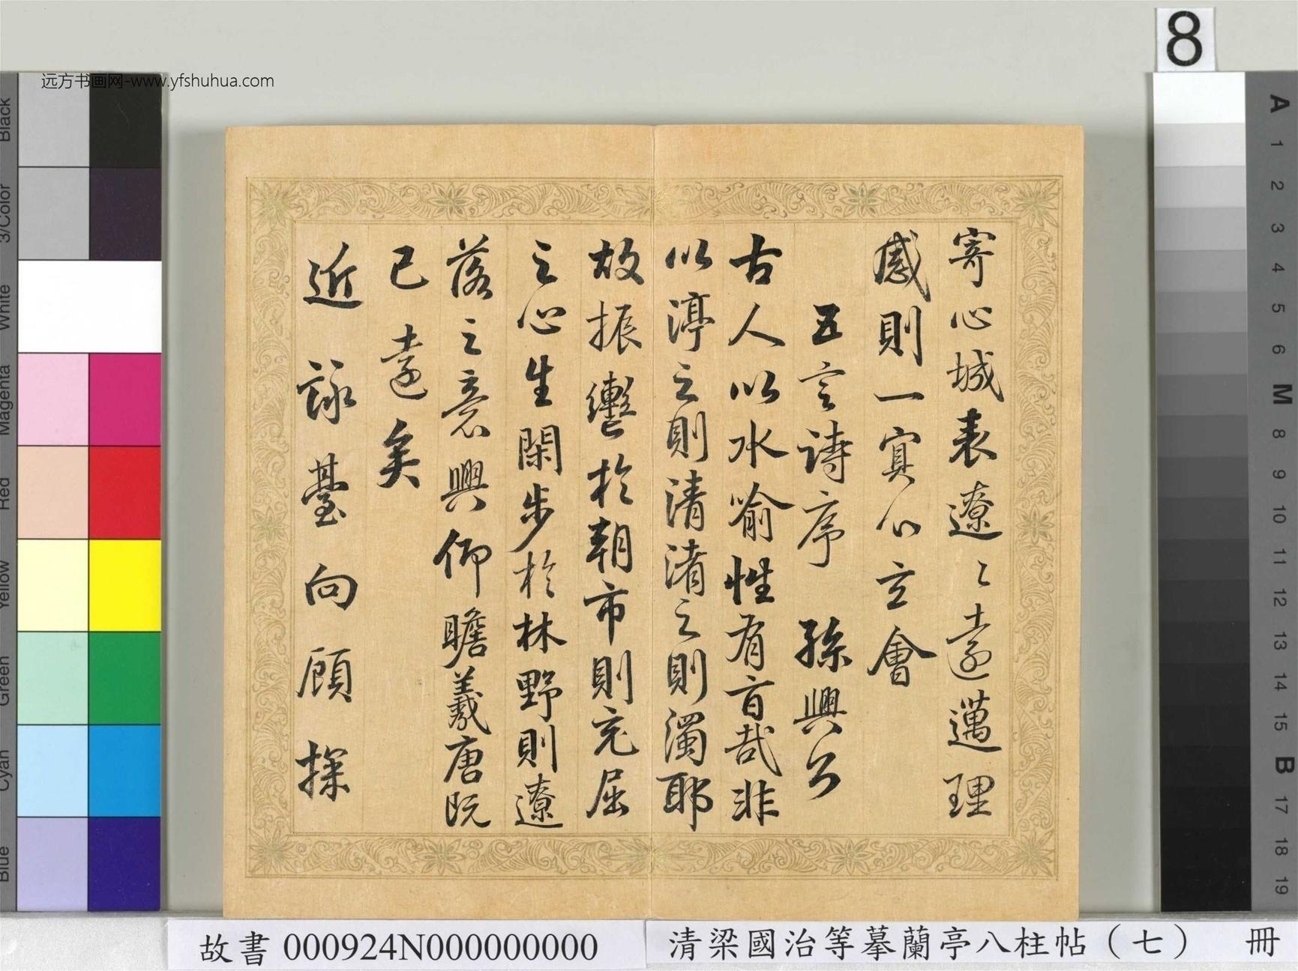 远方书画网-www.yfshuhua.com
8
寄心城表遼〻遠邁理
感則一寘心立會
五言詩序　孫興公
古人以水喻性有旨哉非
以渟之則清淆之則濁耶
故振轡於朝市則充屈
之心生閑步於林野則遼
落之意興仰瞻羲唐既
已遠矣
近詠臺向顧探
Black
3/Color
White
Magenta
Red
Yellow
Green
Cyan
Blue
A
1
2
3
4
5
6
M
8
9
10
11
12
13
14
15
B
17
18
19
故書 000924N000000000
清梁國治等摹蘭亭八柱帖（七） 冊